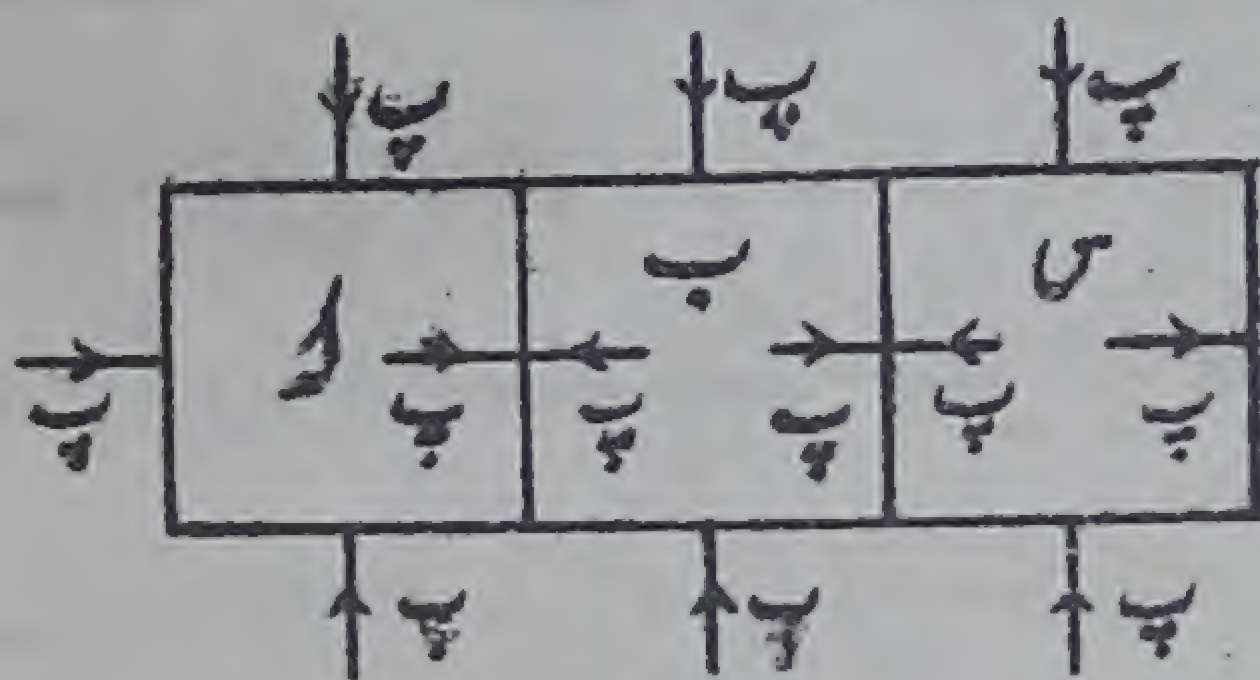 پ پ پ
س ب
پ پ پ پ پ پ
پ پ پ